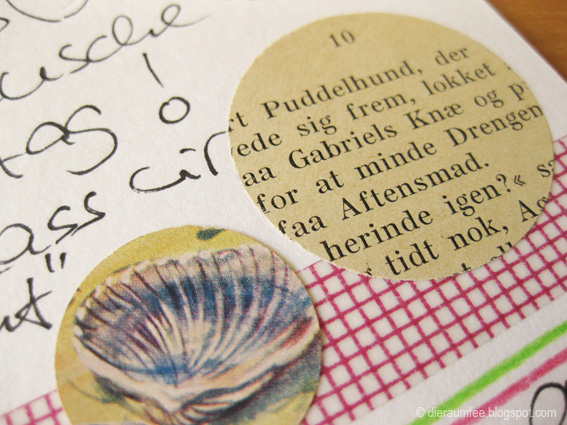 usche
tag!
ass
10
t Puddelhund, der
ede sig frem, lokket
aa Gabriels Knæ og p
for at minde Drengen
faa Aftensmad.
herinde igen?« sa
tidt nok, A
© dieraumfee.blogspot.com